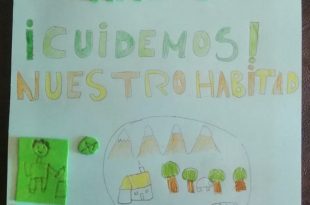 ¡CUIDEMOS!
NUESTRO HABITAD